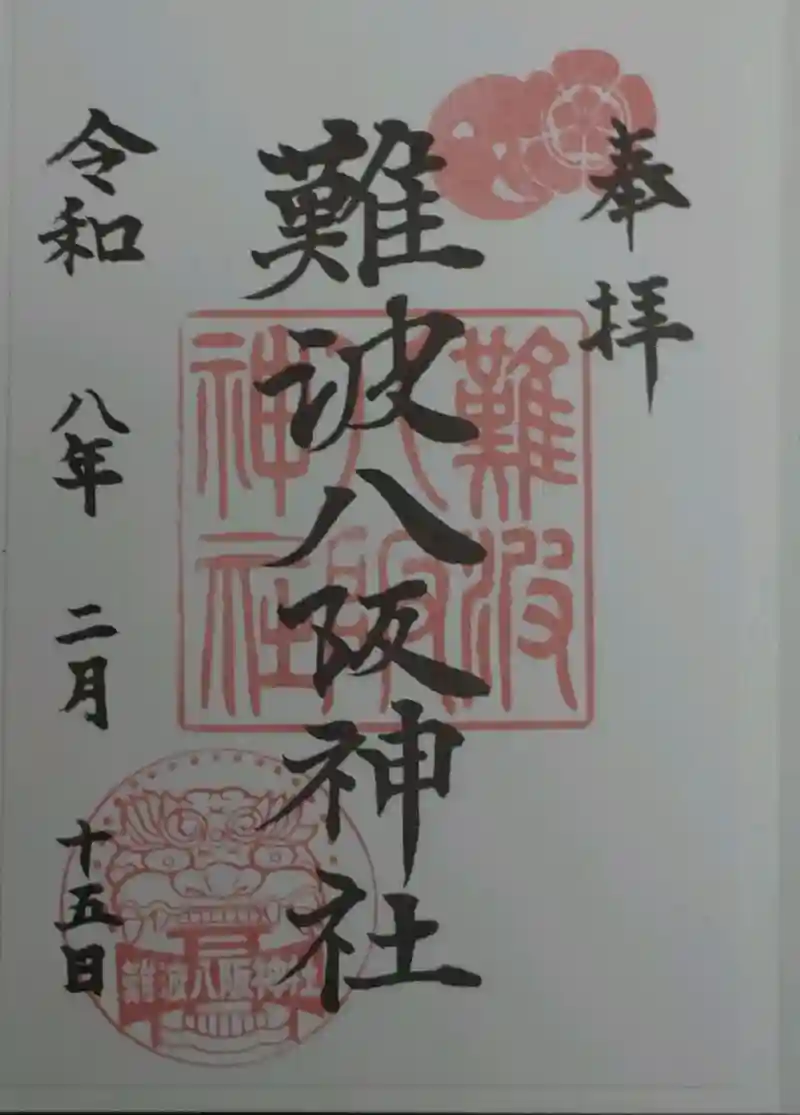 奉拝
難波八阪神社
令和 八年 二月 十五日
難波八阪神社
難波八阪神社